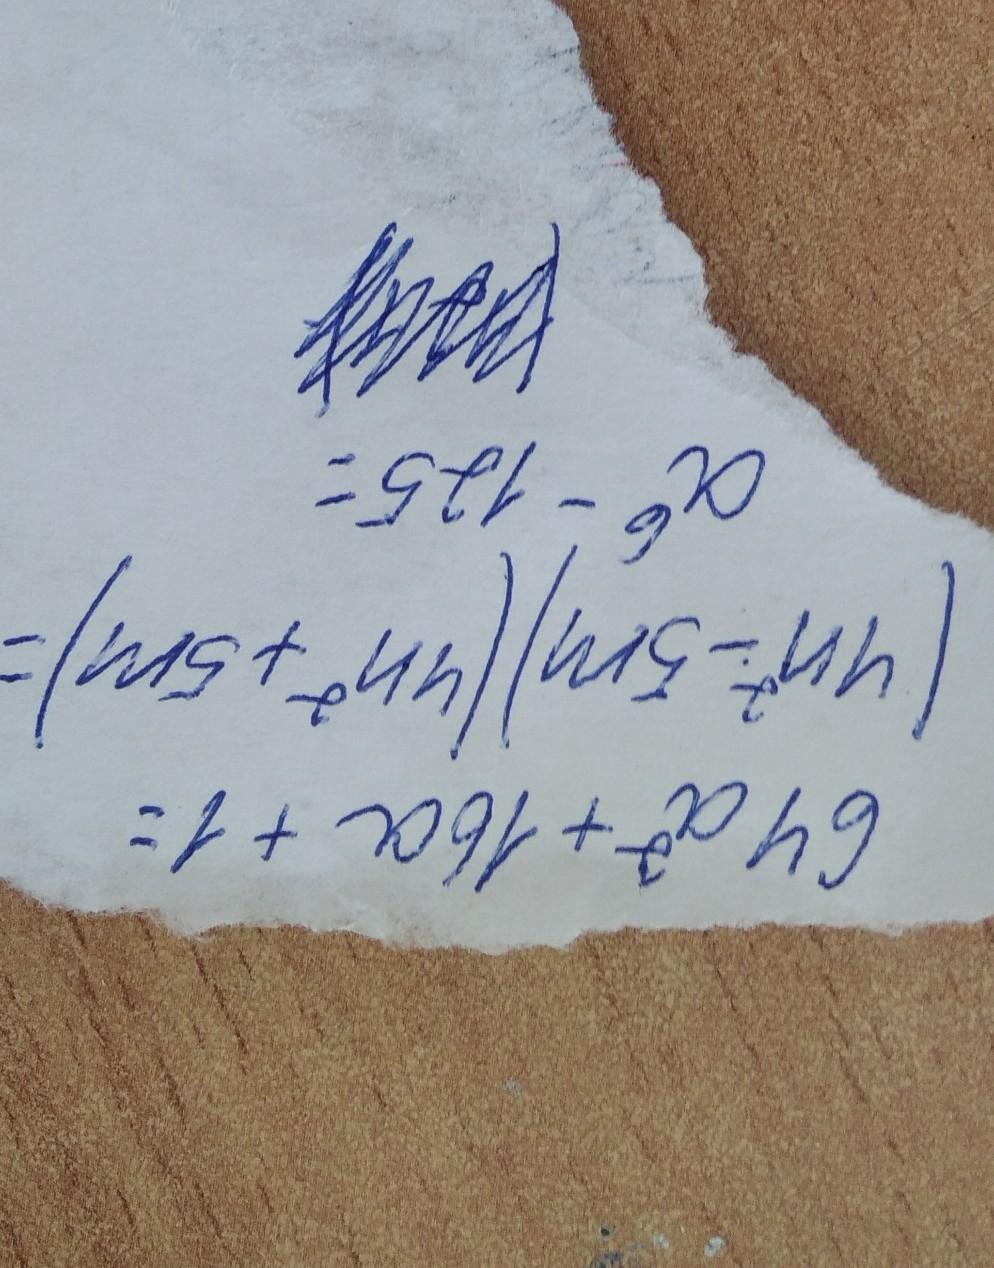 64a² + 16a + 1 =
(4n² - 5m)(4n² + 5m) =
a⁶ - 125 =